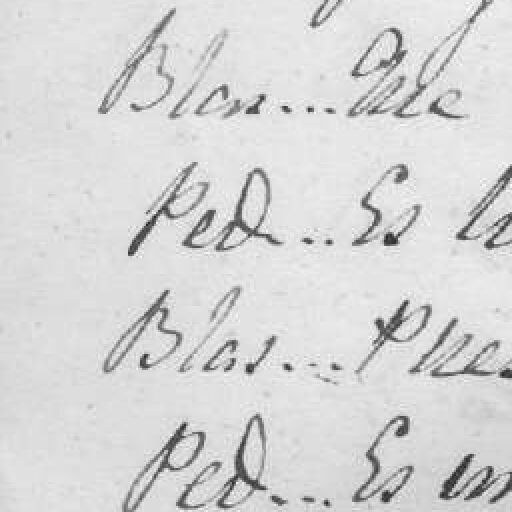 Blas... Que
Ped... Es lo
Blas... Pues
Ped... Es un